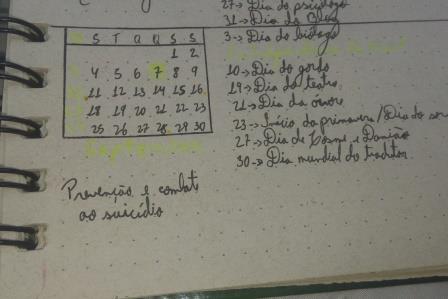 27-> Dia do psicólogo
31-> Dia do Blog
S T Q Q S S
1 2
4 5 6 7 8 9
11 12 13 14 15 16
18 19 20 21 22 23
25 26 27 28 29 30
Setembro
3-> Dia do biólogo
10-> Dia do gordo
19-> Dia do teatro
21-> Dia da árvore
23-> Início da primavera/Dia do
27-> Dia de Cosme e Damião
30-> Dia mundial do tradutor
Prevenção e combate
ao suicídio